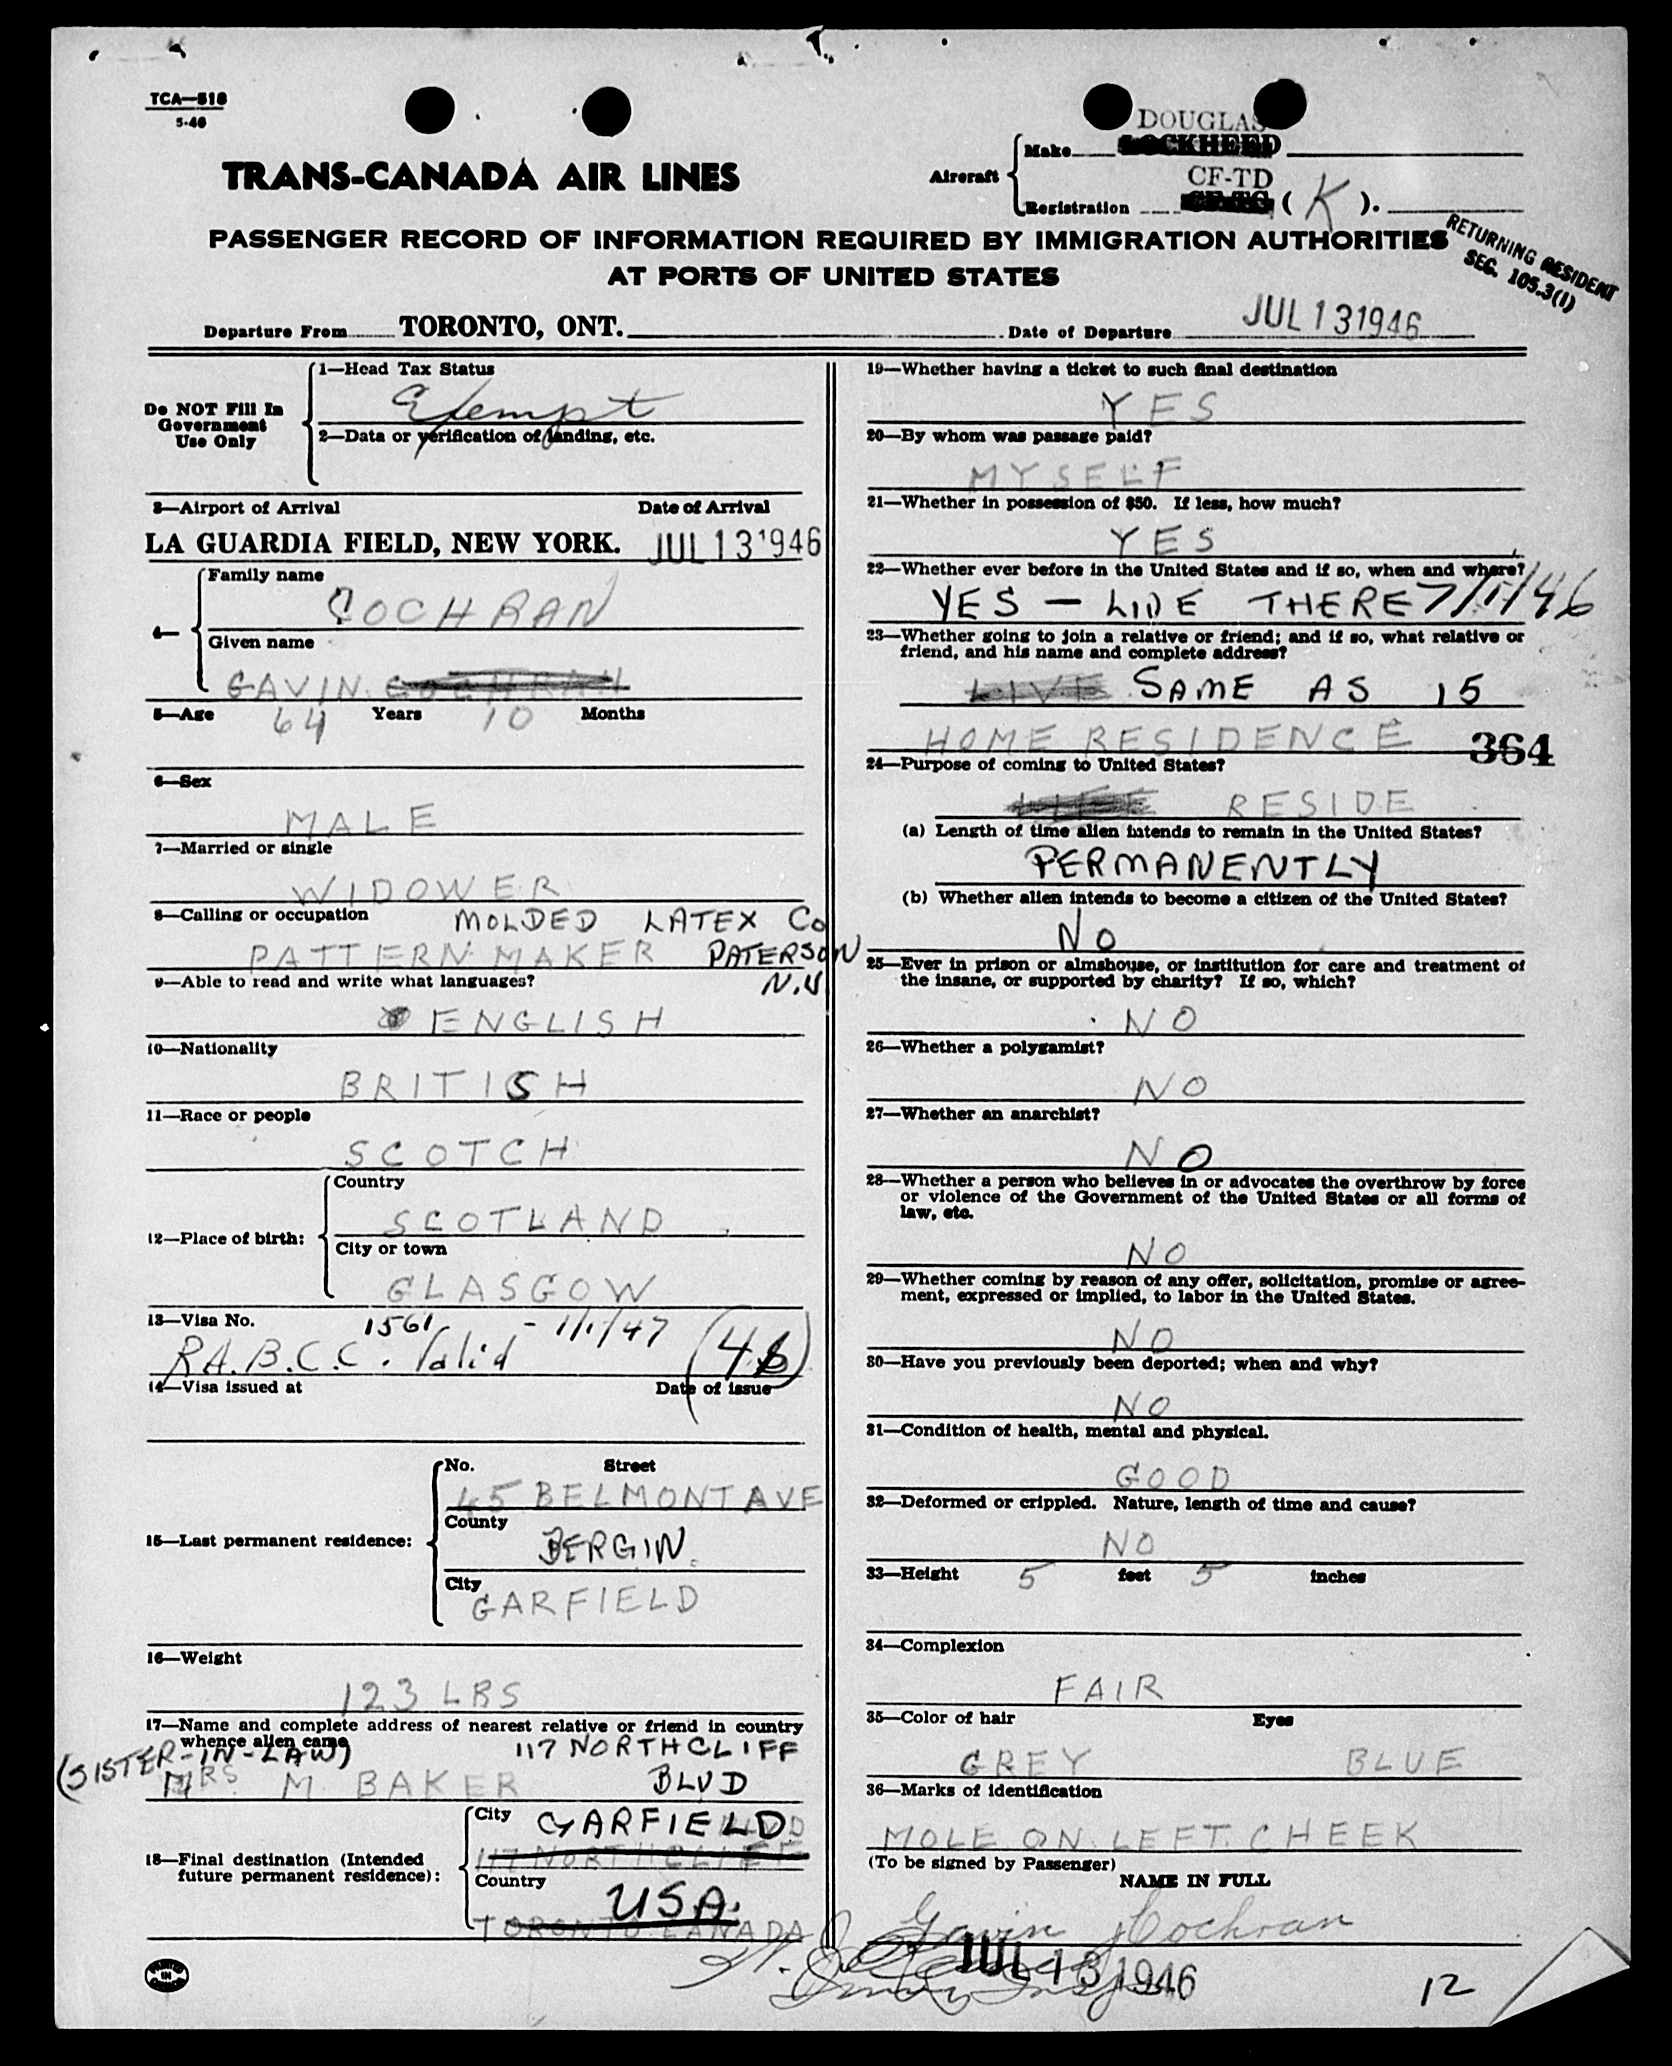 TCA—518
5-46
TRANS-CANADA AIR LINES
Aircraft
Make
DOUGLAS
LOCKHEED
Registration
CF-TD
CF-TG ( K ).
PASSENGER RECORD OF INFORMATION REQUIRED BY IMMIGRATION AUTHORITIES
AT PORTS OF UNITED STATES
RETURNING RESIDENT
SEC. 105.3(1)
Departure From TORONTO, ONT. Date of Departure JUL 13 1946
Do NOT Fill In
Government
Use Only
1—Head Tax Status
Exempt
2—Data or verification of landing, etc.
3—Airport of Arrival Date of Arrival
LA GUARDIA FIELD, NEW YORK. JUL 13 1946
4—
Family name
COCHRAN
Given name
GAVIN COCHRAN
5—Age 64 Years 10 Months
6—Sex
MALE
7—Married or single
WIDOWER
8—Calling or occupation MOLDED LATEX Co
PATTERN MAKER PATERSON
9—Able to read and write what languages? N.J
ENGLISH
10—Nationality
BRITISH
11—Race or people
SCOTCH
12—Place of birth:
Country
SCOTLAND
City or town
GLASGOW
13—Visa No. 1561 - 1/1/47
RA.B.C.C. Valid (46)
14—Visa issued at Date of issue
15—Last permanent residence:
No. Street
45 BELMONT AVE
County
BERGIN.
City
GARFIELD
16—Weight
123 LBS
17—Name and complete address of nearest relative or friend in country
whence alien came
(SISTER-IN-LAW) 117 NORTHCLIFF
MRS. M BAKER BLVD
18—Final destination (Intended
future permanent residence):
City GARFIELD BLVD
117 NORTHCLIFF
Country
USA.
TORONTO CANADA
19—Whether having a ticket to such final destination
YES
20—By whom was passage paid?
MYSELF
21—Whether in possession of $50. If less, how much?
YES
22—Whether ever before in the United States and if so, when and where?
YES — LIVE THERE 7/1/46
23—Whether going to join a relative or friend; and if so, what relative or
friend, and his name and complete address?
LIVE SAME AS 15
HOME RESIDENCE 364
24—Purpose of coming to United States?
RESIDE
(a) Length of time alien intends to remain in the United States?
PERMANENTLY
(b) Whether alien intends to become a citizen of the United States?
NO
25—Ever in prison or almshouse, or institution for care and treatment of
the insane, or supported by charity? If so, which?
NO
26—Whether a polygamist?
NO
27—Whether an anarchist?
NO
28—Whether a person who believes in or advocates the overthrow by force
or violence of the Government of the United States or all forms of
law, etc.
NO
29—Whether coming by reason of any offer, solicitation, promise or agree-
ment, expressed or implied, to labor in the United States.
NO
30—Have you previously been deported; when and why?
NO
31—Condition of health, mental and physical.
GOOD
32—Deformed or crippled. Nature, length of time and cause?
NO
33—Height 5 feet 5 inches
34—Complexion
FAIR
35—Color of hair Eyes
GREY BLUE
36—Marks of identification
MOLE ON LEFT CHEEK
(To be signed by Passenger)
NAME IN FULL
Gavin Cochran
JUL 13 1946
12